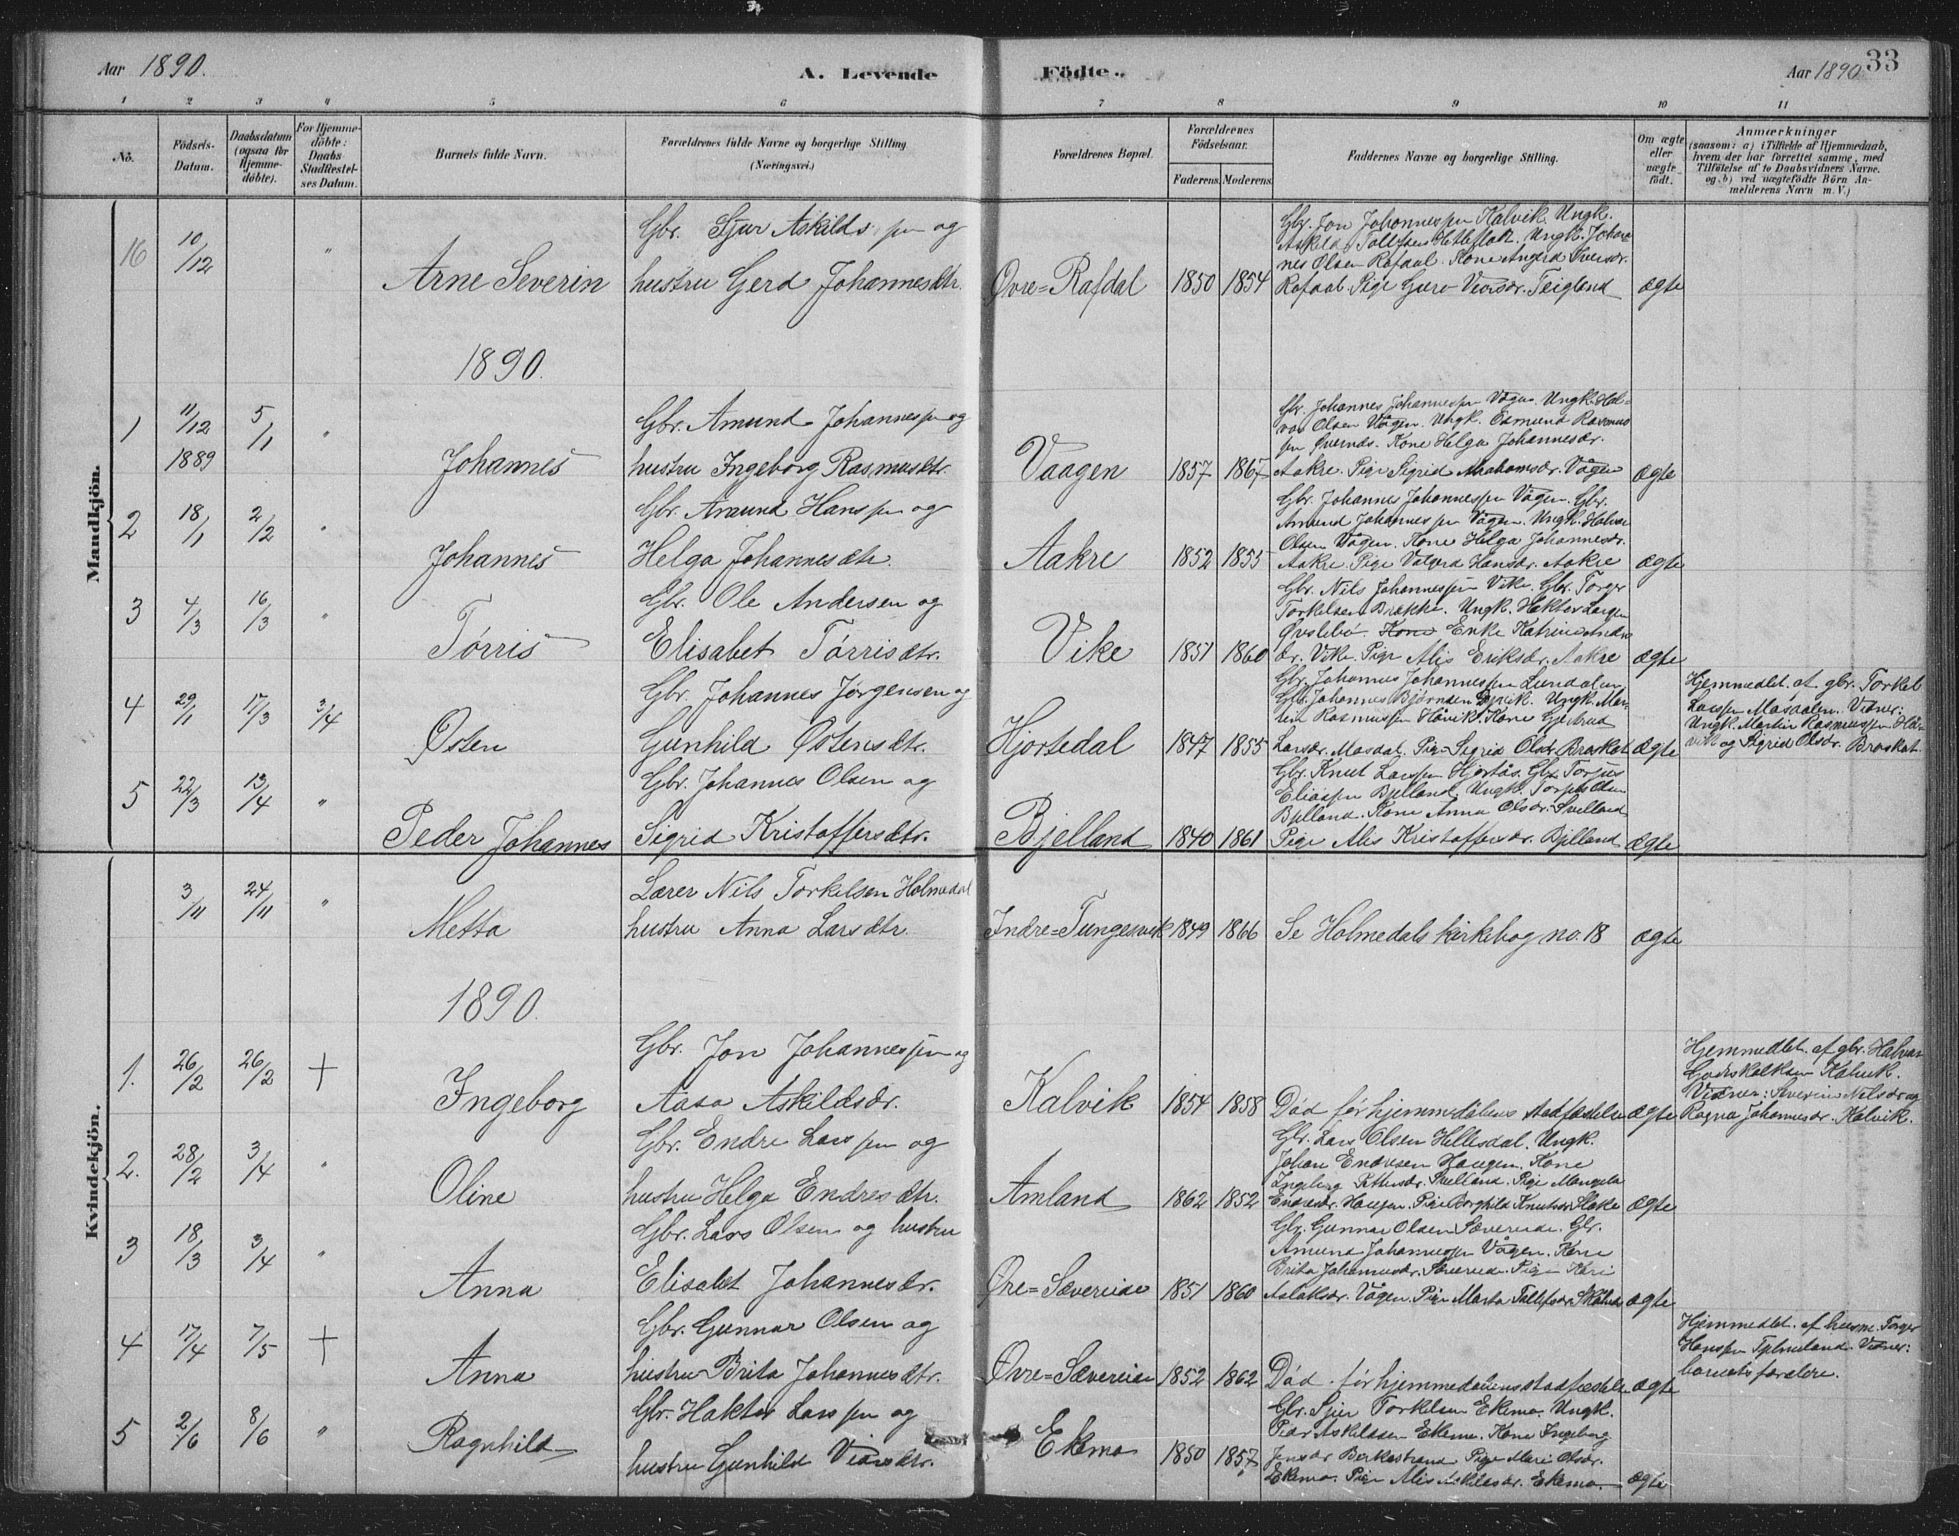 Aar 1890.
A. Levende
Födte.
Aar 1890
33
1 2 3 4 5 6 7 8 9 10 11
No.
Födsels-
Datum.
Daabsdatum
(ogsaa for
Hjemme-
döbte).
For Hjemme-
döbte:
Daabs
Stadfæstel-
ses Datum.
Barnets fulde Navn.
Forældrenes fulde Navne og borgerlige Stilling
(Næringsvei.)
Forældrenes Bopæl.
Forældrenes
Födselsaar.
Faderens. Moderens.
Faddernes Navne og borgerlige Stilling.
Om ægte
eller
uægte
födt.
Anmærkninger
(saasom: a) i Tilfælde af Hjemmedaab,
hvem der har forrettet samme, med
Tilföielse af to Daabsvidners Navne.
og b) ved uægtefödte Börn An-
melderens Navn m. V.)
Mandkjön.
16 10/12 "
Arne Severin
Gbr. Sjur Askilds sen og
hustru Gerd Johannesdtr.
Øvre=Rafdal 1850 1854
Gbr. Jon Johannessen Kalvik. Ungk.
Askild Tollefsen Hetleflot. Ungk. Johan-
nes Olsen Rafdal. Kone
Rafdal. Pige Guro Teigland
ægte
1890.
1 11/12 1889 5/1 "
Johannes
Gbr. Amund Johannessen og
hustru Ingeborg Rasmusdtr.
Vaagen 1857 1867
Gbr. Johannes Johannessen Vågen. Ungk. Hal-
vor Olsen Vågen. Ungk. Osmund Rasmus
sen Kone Helga Johannesdr.
Aakre. Pige Sigrid Abrahamsdr. Vågen
ægte
2 18/1 2/2 "
Johannes
Gbr. Amund Hanssen og
Helga Johannesdtr.
Aakre 1852 1855
Gbr. Johannes Johannessen Vågen. Gbr.
Amund Johannessen Vågen. Ungk. Halvor
Olsen Vågen. Kone Helga Johannesdr.
Aakre. Pige Hansdr. Aakre
ægte
3 4/3 16/3 "
Tørris
Gbr. Ole Andersen og
Elisabet Tørrisdtr.
Vike 1851 1860
Gbr. Nils Johannessen Vike. Gbr. Torger
Torkelsen Brekke. Ungk. Haktor Largen
Øvslebø. Kone Enke Katrine Anders
dr. Vike. Pige Alis Eriksdr. Aakre
ægte
4 29/1 17/3 3/4
Østen
Gbr. Johannes Jørgensen og
Gunhild Østensdtr.
Hjortedal 1847 1855
Gbr. Johannes Johannessen Lundalen
Gbr. Johannes Bjørnsen Ungk. Mar-
tin Rasmussen Håvik. Kone Gjertrud
Larsdr. Masdal. Pige Sigrid Olsdr. Braskat
ægte
Hjemmedbt. af gbr. Torkel
Larssen Masdalen. Vidner:
Ungk. Martin Rasmussen Hå-
vik og Sigrid Olsdr. Braskat.
5 22/3 13/4 "
Peder Johannes
Gbr. Johannes Olsen og
Sigrid Kristoffersdtr.
Bjelland 1840 1861
Gbr. Knut Larssen Hjortås. Gbr. Torjus
Eliassen Bjelland. Ungk. Olsen
Bjelland. Kone Anna Olsdr.
Pige Alis Kristoffersdr. Bjelland
ægte
Kvindekjön.
3/11 24/11 "
Metta
Lærer Nils Torkelsen Holmedal
hustru Anna Larsdtr.
Indre=Tungesvik 1849 1866
Se Holmedals kirkebog no. 18
ægte
1890.
1. 26/2 26/2 +
Ingeborg
Gbr. Jon Johannessen og
Aasa Askildsdr.
Kalvik 1854 1858
Død før hjemmedåbens stadfæstelse
ægte
Hjemmedbt. af gbr. Halvar
Godskalksen Kalvik.
Vidner: Severine Nilsdr. og
Ragna Johannesdr. Kalvik.
2. 28/2 3/4 "
Oline
Gbr. Endre Larssen og
hustru Helga Endresdtr.
Amland 1862 1852
Gbr. Lars Olsen Hellesdal. Ungk.
Johan Endresen Haugen. Kone
Ingeborg Pige
Endresdr. Haugen. Pige Borghild Knutsdr.
ægte
3 18/3 3/4 "
Anna
Gbr. Lars Olsen og hustru
Elisabet Johannesdr.
Øre=Sævereide 1851 1860
Gbr. Gunnar Olsen Sævereide. Gbr.
Amund Johannessen Vågen. Kone
Brita Johannesdr. Sævereide. Pige Kari
Aslaksdr. Vågen. Pige Marta Tollefsdr.
ægte
4 17/4 7/5 +
Anna
Gbr. Gunnar Olsen og
hustru Brita Johannesdtr.
Øvre=Sævereide 1852 1862
Død før hjemmedåbens stadfæstelse
ægte
Hjemmedbt. af husm. Torger
Hanssen Vidner:
barnets forældre.
5 2/6 8/6 "
Ragnhild
Gbr. Haktor Larssen og
hustru Gunhild Viarsdtr.
Ekemo 1850 1857
Gbr. Sjer Torkelsen Ekemo. Ungk.
Peder Askildsen Ekemo. Kone Ingeborg
Jensdr Berkestrand Pige Mari Olsdr.
Ekemo. Pige Alis Askildsdr. Ekemo.
ægte